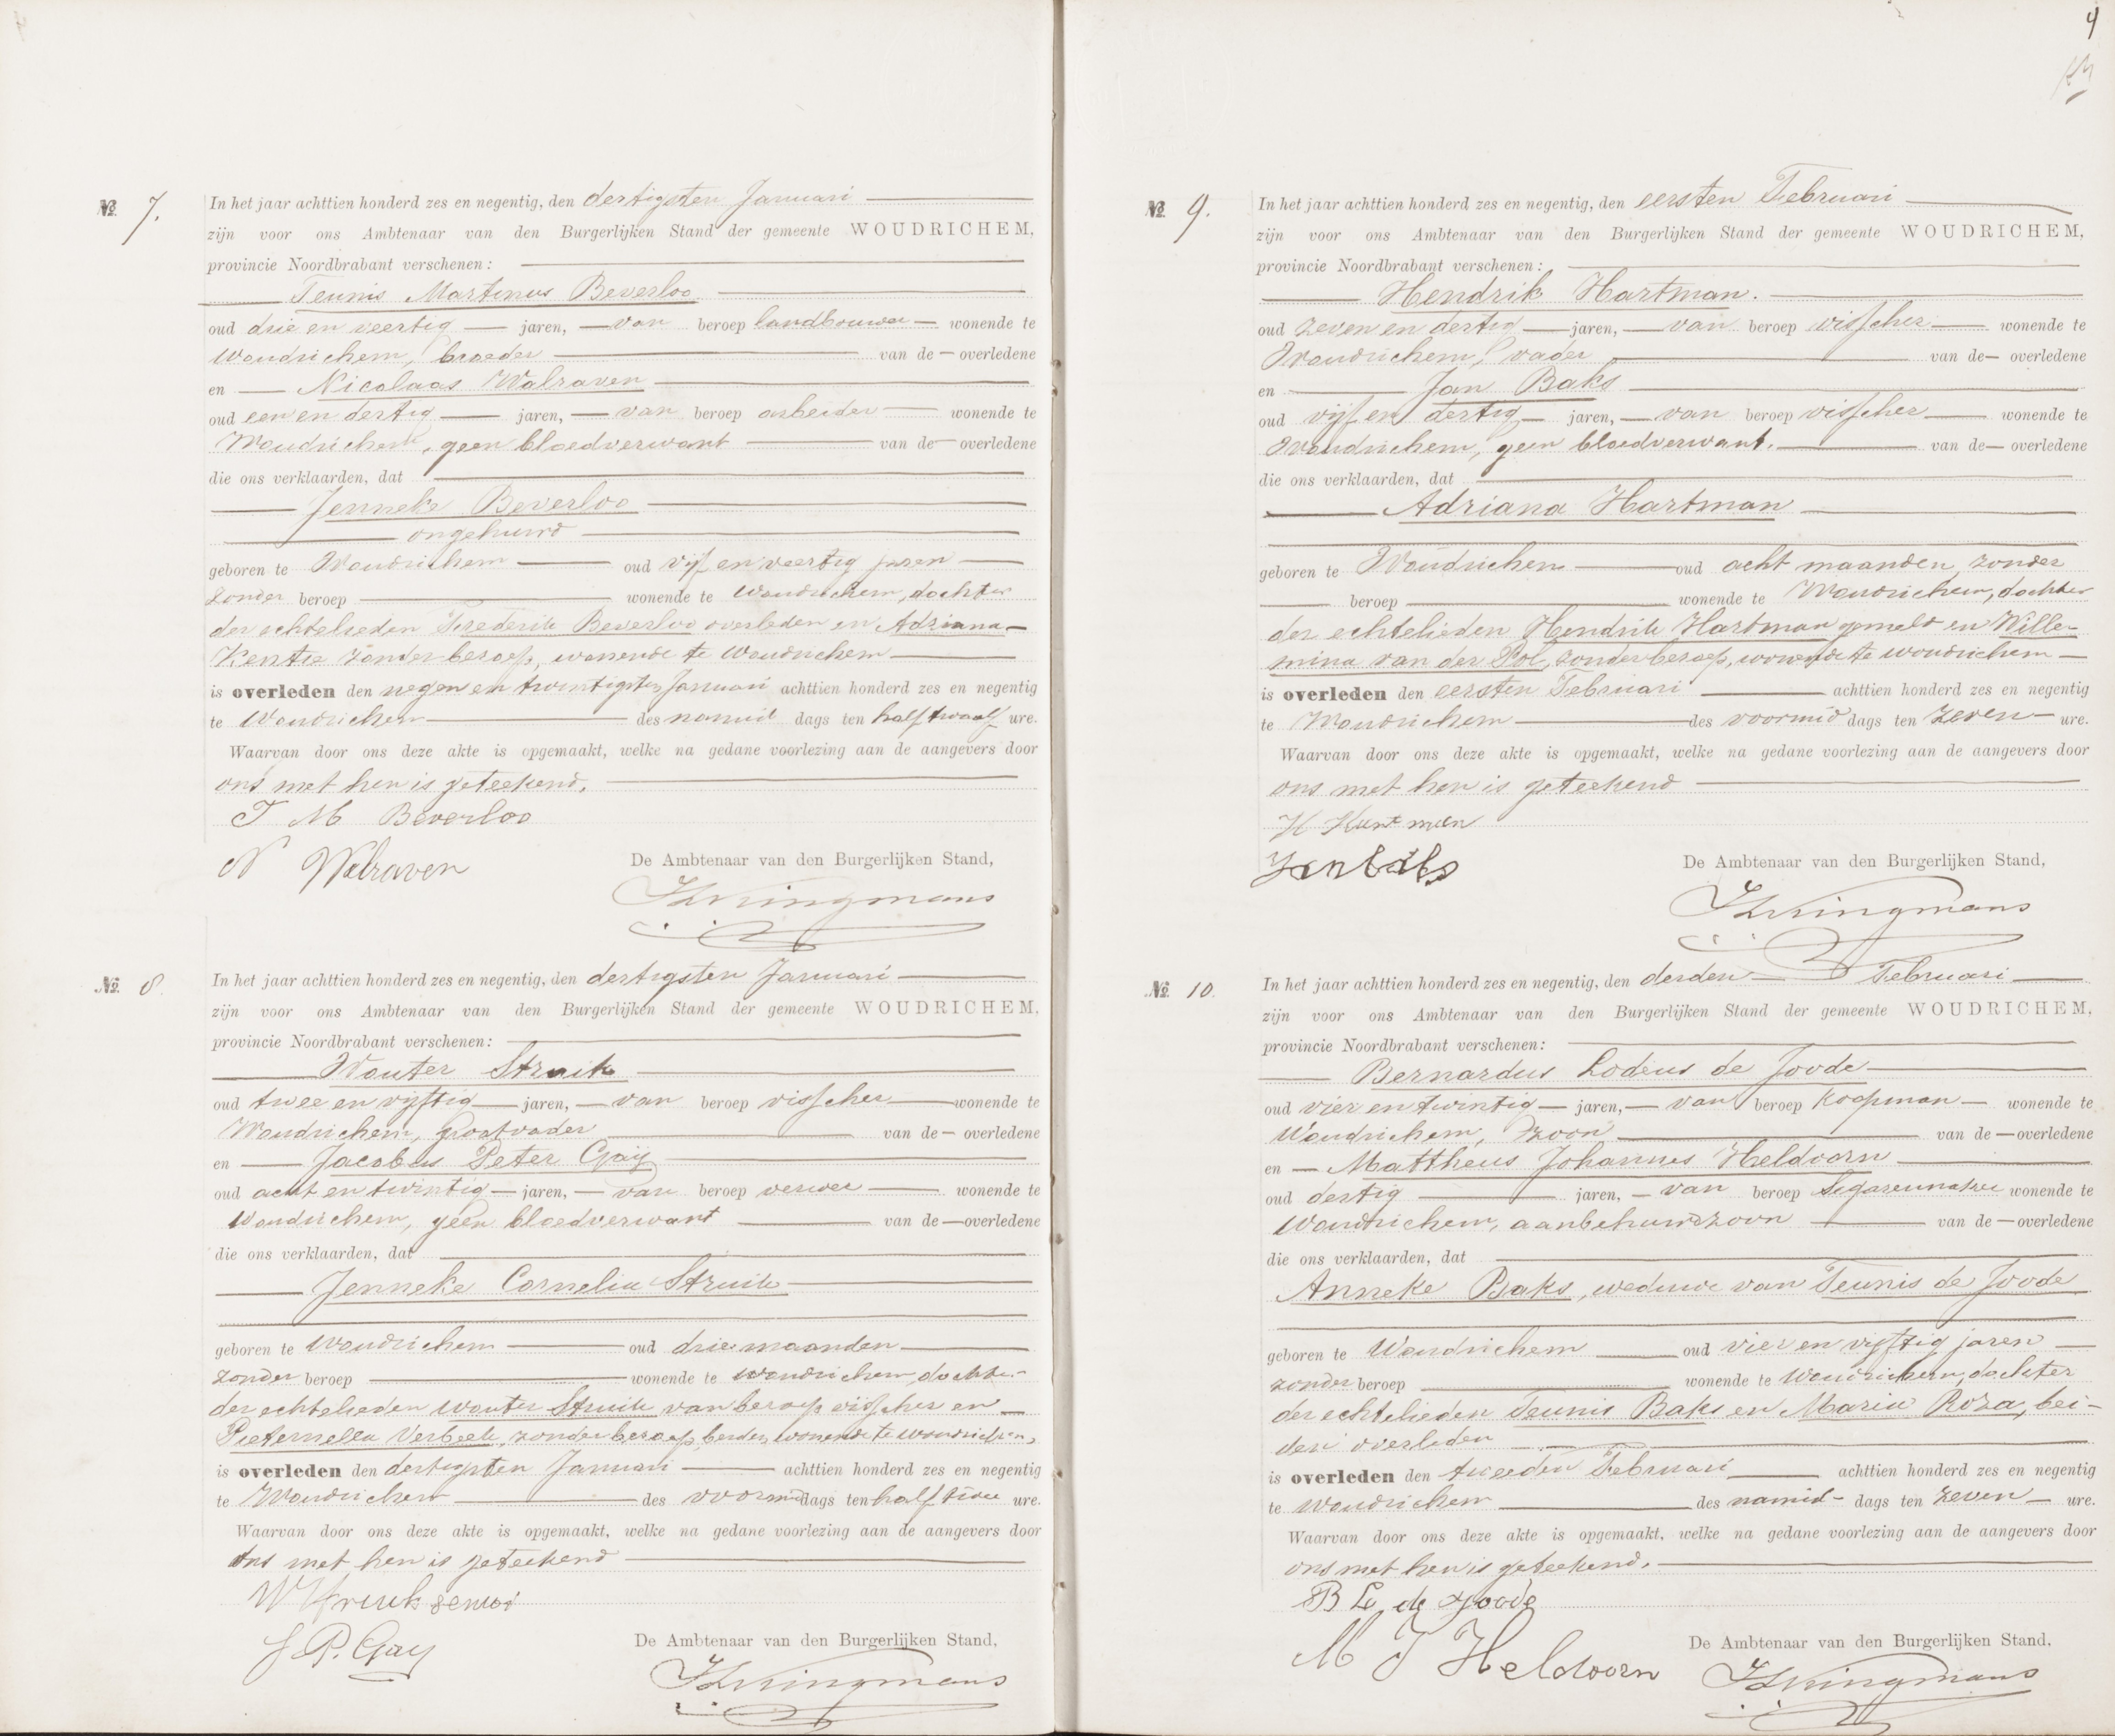 № 7.
In het jaar achttien honderd zes en negentig, den dertigsten Januari
zijn voor ons Ambtenaar van den Burgerlijken Stand der gemeente WOUDRICHEM,
provincie Noordbrabant verschenen:
Teunis Martinus Beverloo
oud drie en veertig jaren, van beroep landbouwer wonende te
Woudrichem, broeder van de overledene
en Nicolaas Walraven
oud een en dertig jaren, van beroep arbeider wonende te
Woudrichem, geen bloedverwant van de overledene
die ons verklaarden, dat
Jenneke Beverloo
ongehuwd
geboren te Woudrichem oud vijf en veertig jaren
zonder beroep wonende te Woudrichem, dochter
der echtelieden Frederik Beverloo overleden en Adriana
Kentie zonder beroep, wonende te Woudrichem
is overleden den negen en twintigsten Januari achttien honderd zes en negentig
te Woudrichem des namid dags ten half twaalf ure.
Waarvan door ons deze akte is opgemaakt, welke na gedane voorlezing aan de aangevers door
ons met hen is geteekend.
T M Beverloo
N Walraven
De Ambtenaar van den Burgerlijken Stand,
№ 8.
In het jaar achttien honderd zes en negentig, den dertigsten Januari
zijn voor ons Ambtenaar van den Burgerlijken Stand der gemeente WOUDRICHEM,
provincie Noordbrabant verschenen:
Wouter Struik
oud twee en vijftig jaren, van beroep visscher wonende te
Woudrichem, grootvader van de overledene
en Jacobus Peter Gay
oud acht en twintig jaren, van beroep verwer wonende te
Woudrichem, geen bloedverwant van de overledene
die ons verklaarden, dat
Jenneke Cornelia Struik
geboren te Woudrichem oud drie maanden
zonder beroep wonende te Woudrichem, dochter
der echtelieden Wouter Struik van beroep visscher en
Pieternella Verbeek, zonder beroep, beiden wonende te Woudrichem,
is overleden den dertigsten Januari achttien honderd zes en negentig
te Woudrichem des voormiddags ten half twee ure.
Waarvan door ons deze akte is opgemaakt, welke na gedane voorlezing aan de aangevers door
ons met hen is geteekend
W Struik senior
J. P. Gay
De Ambtenaar van den Burgerlijken Stand,
4
№ 9.
In het jaar achttien honderd zes en negentig, den eersten Februari
zijn voor ons Ambtenaar van den Burgerlijken Stand der gemeente WOUDRICHEM,
provincie Noordbrabant verschenen:
Hendrik Hartman.
oud zeven en dertig jaren, van beroep visscher wonende te
Woudrichem, vader van de overledene
en Jan Baks
oud vijf en dertig jaren, van beroep visscher wonende te
Woudrichem, geen bloedverwant. van de overledene
die ons verklaarden, dat
Adriana Hartman
geboren te Woudrichem oud acht maanden, zonder
beroep wonende te Woudrichem, dochter
der echtelieden Hendrik Hartman gemeld en Wille-
mina van der Pol, zonder beroep, wonende te Woudrichem
is overleden den eersten Februari achttien honderd zes en negentig
te Woudrichem des voormid dags ten zeven ure.
Waarvan door ons deze akte is opgemaakt, welke na gedane voorlezing aan de aangevers door
ons met hen is geteekend
H Hartman
Jan Baks
De Ambtenaar van den Burgerlijken Stand,
№ 10.
In het jaar achttien honderd zes en negentig, den derden Februari
zijn voor ons Ambtenaar van den Burgerlijken Stand der gemeente WOUDRICHEM,
provincie Noordbrabant verschenen:
Bernardus Lodeus de Joode
oud vier en twintig jaren, van beroep koopman wonende te
Woudrichem, zoon van de overledene
en Mattheus Johannes Heldoorn
oud dertig jaren, van beroep Segarenmaker wonende te
Woudrichem, aanbehuwdzoon van de overledene
die ons verklaarden, dat
Anneke Baks, weduwe van Teunis de Joode
geboren te Woudrichem oud vier en vijftig jaren
zonder beroep wonende te Woudrichem, dochter
der echtelieden Teunis Baks en Maria Roza, bei-
den overleden
is overleden den tweeden Februari achttien honderd zes en negentig
te Woudrichem des namid- dags ten zeven ure.
Waarvan door ons deze akte is opgemaakt, welke na gedane voorlezing aan de aangevers door
ons met hen is geteekend.
B L de Joode
M J Heldoorn
De Ambtenaar van den Burgerlijken Stand,